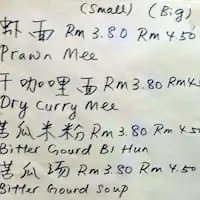 (Small) (Big)
虾面 Rm 3.80 Rm 4.50
Prawn Mee
干咖喱面 Rm 3.80 Rm 4
Dry Curry Mee
苦瓜米粉 Rm 3.80 Rm 4.50
Bitter Gourd Bi Hun
苦瓜汤 Rm 3.80 Rm 4.50
Bitter Gourd Soup